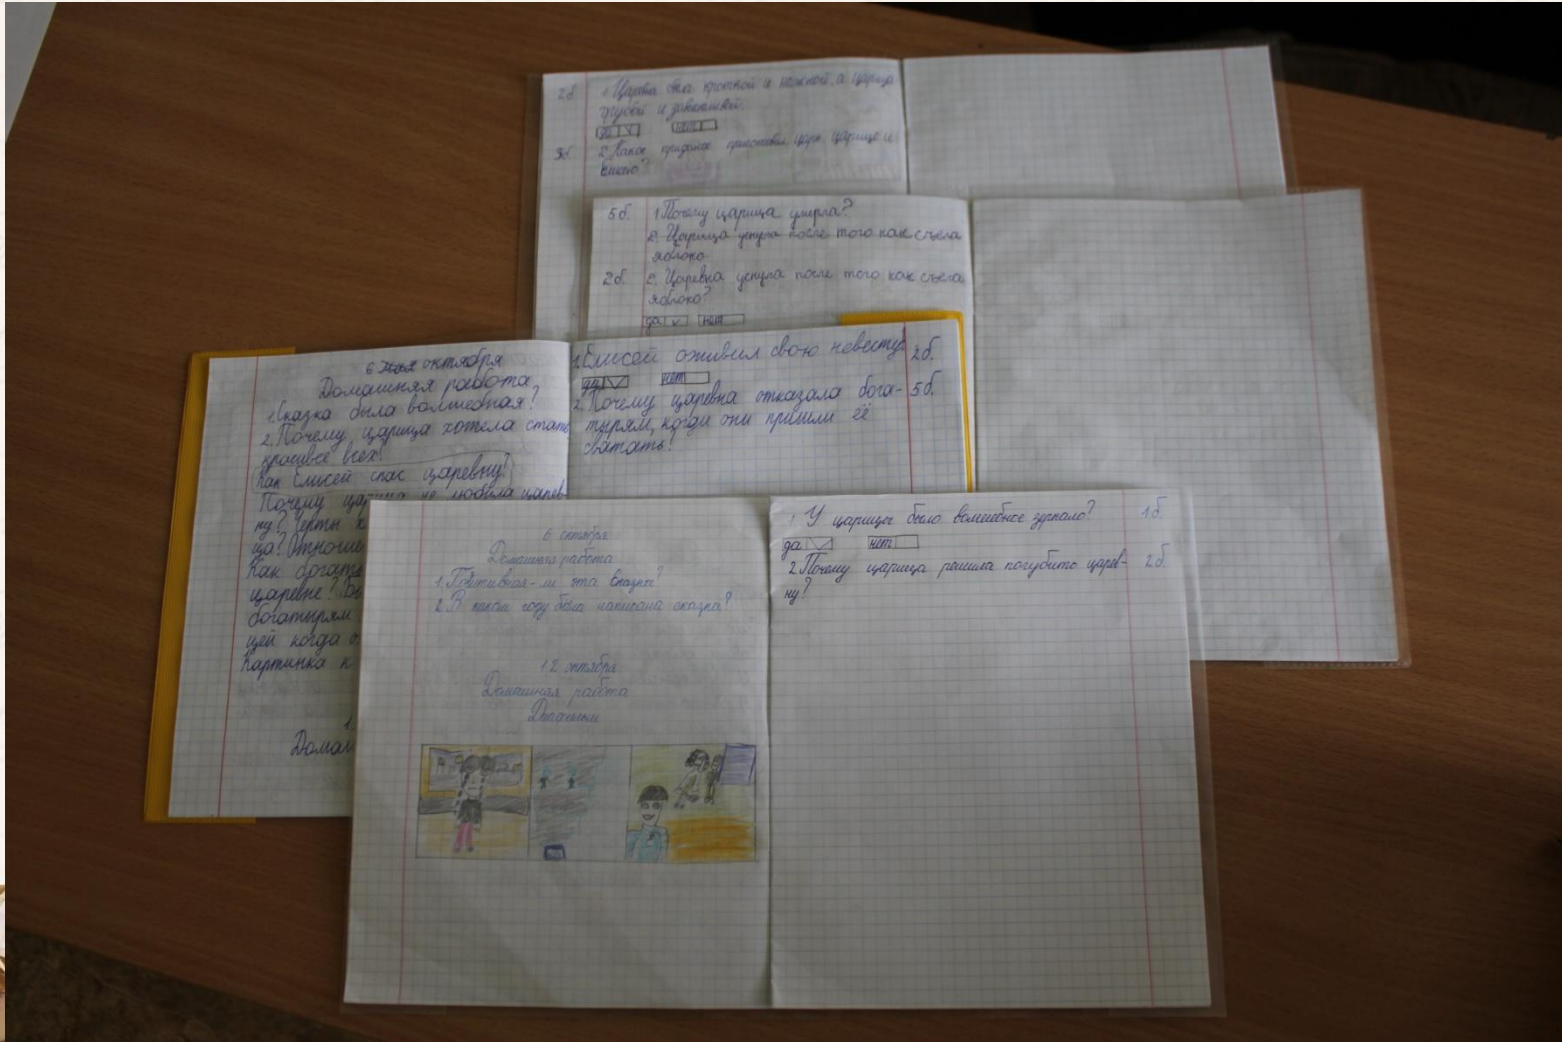 2б. 1. Царевна была кроткой и нежной, а царица
грубой и завистливой.
да нет
3б. 2. Какое приданое приготовил царь царице и
Елисею?
5б. 1 Почему царица умерла?
2. Царица уснула после того как съела
яблоко
2б. 2. Царевна уснула после того как съела
яблоко?
да нет
6 октября
Домашняя работа
1. Сказка была волшебная?
2. Почему царица хотела стать
красивее всех?
Как Елисей спас царевну?
Почему царица не любила царев-
ну? Черты х
ца? Отноше
Как богаты
царевне?
богатырям
цей когда
Картинка к
1.
Домаш
1. Елисей оживил свою невесту? 2б.
да нет
2. Почему царевна отказала бога- 5б.
тырям, когда они пришли её
сватать?
6 октября
Домашняя работа
1. ли эта сказка?
2. В каком году была написана сказка?
12 октября
Домашняя работа
1 У царицы было волшебное зеркало? 1б.
да нет
2. Почему царица решила погубить царев- 2б.
ну?